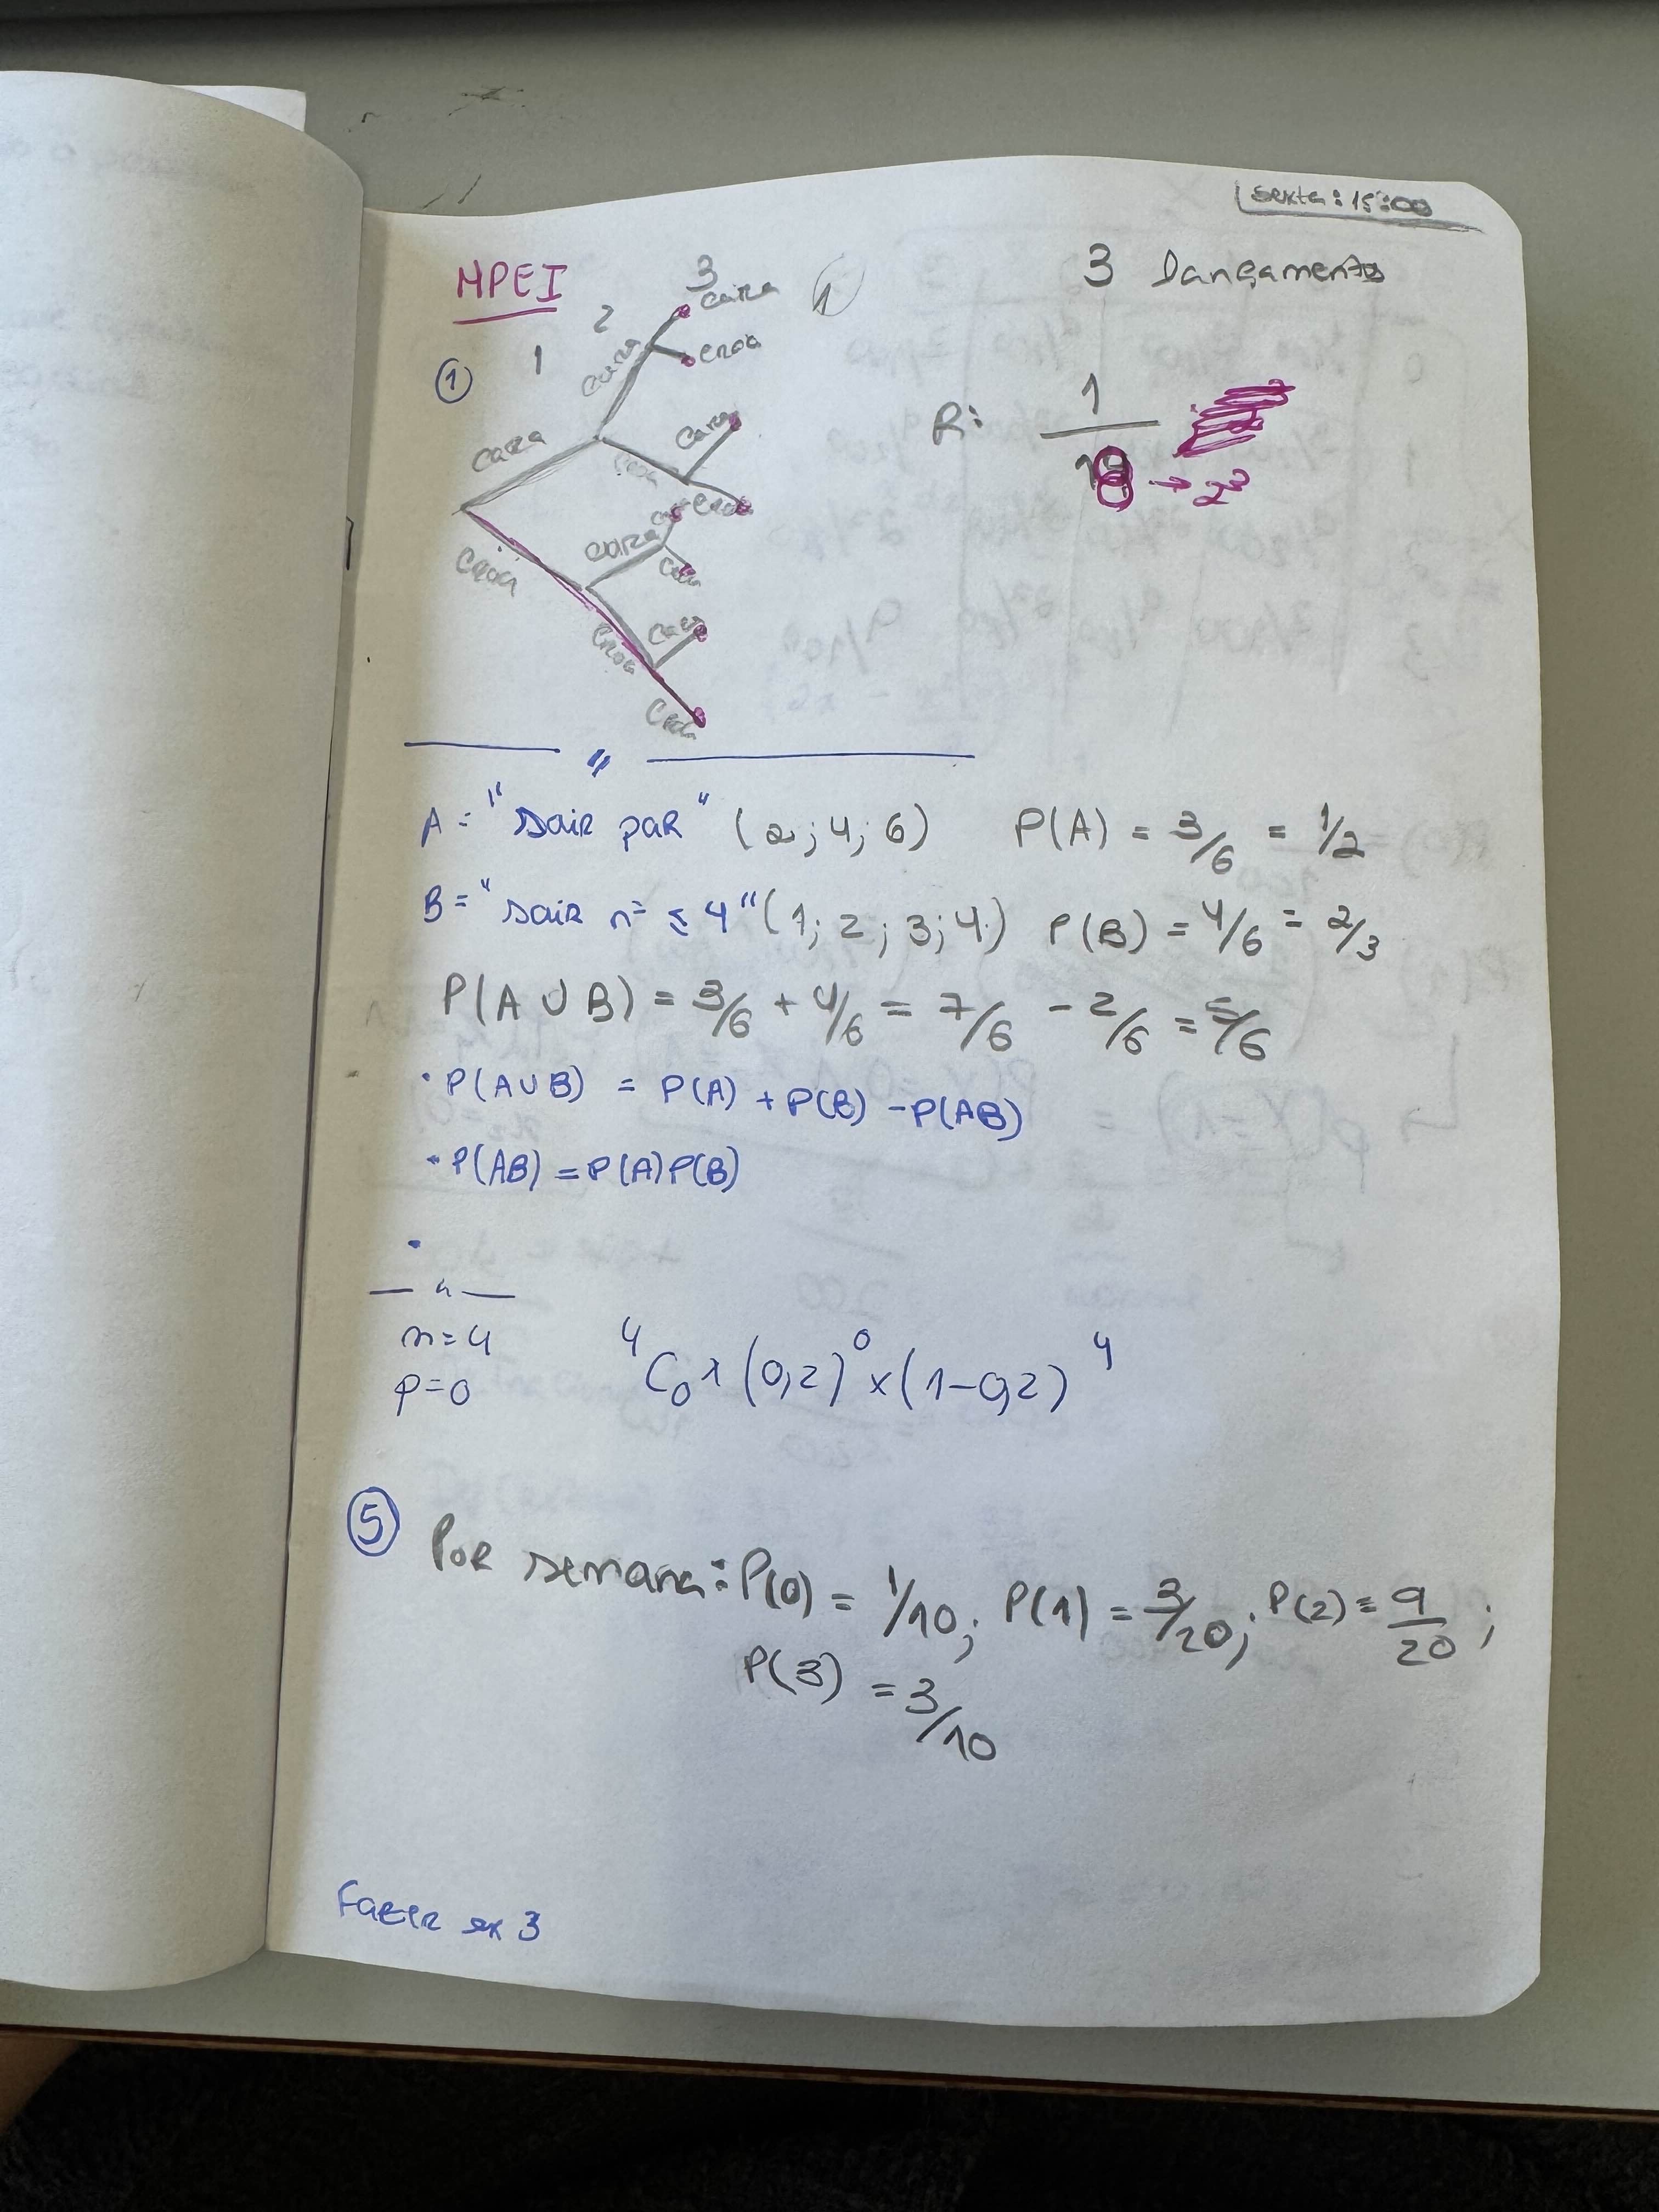 sexta: 15:00
MPEI
1 2 3
① 3 Lançamentos
Cara
Cara
Cara
Croa
Croa
Cara
Croa
Croa
Cara
Croa
Cara
Croa
R: 1/8 → 2³
A = "sair par" (2; 4; 6) P(A) = 3/6 = 1/2
B = "sair nº ≤ 4" (1; 2; 3; 4) P(B) = 4/6 = 2/3
P(A ∪ B) = 3/6 + 4/6 = 7/6 - 2/6 = 5/6
• P(A∪B) = P(A) + P(B) - P(AB)
• P(AB) = P(A)P(B)
n=4
p=0
⁴C₀ x (0,2)⁰ x (1-0,2)⁴
⑤ Por semana: P(0) = 1/10; P(1) = 3/20; P(2) = 9/20;
P(3) = 3/10
Fazer ex 3